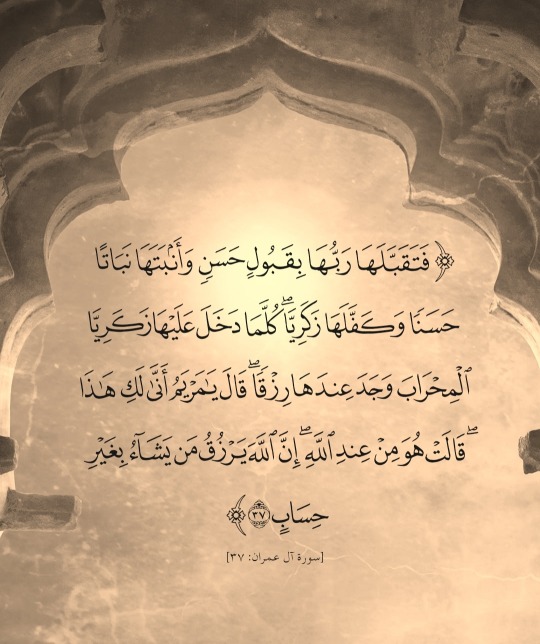 ﴿ فَتَقَبَّلَهَا رَبُّهَا بِقَبُولٍ حَسَنٖ وَأَنۢبَتَهَا نَبَاتًا
حَسَنٗا وَكَفَّلَهَا زَكَرِيَّاۖ كُلَّمَا دَخَلَ عَلَيۡهَا زَكَرِيَّا
ٱلۡمِحۡرَابَ وَجَدَ عِندَهَا رِزۡقٗاۖ قَالَ يَٰمَرۡيَمُ أَنَّىٰ لَكِ هَٰذَا
ۖ قَالَتۡ هُوَ مِنۡ عِندِ ٱللَّهِۖ إِنَّ ٱللَّهَ يَرۡزُقُ مَن يَشَآءُ بِغَيۡرِ
حِسَابٍ ٣٧ ﴾
[سورة آل عمران: ٣٧]